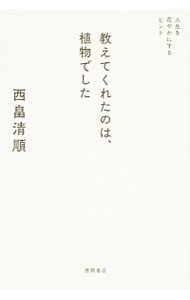 人生を
花やかにする
ヒント
教えてくれたのは、
植物でした
西畠清順
徳間書店